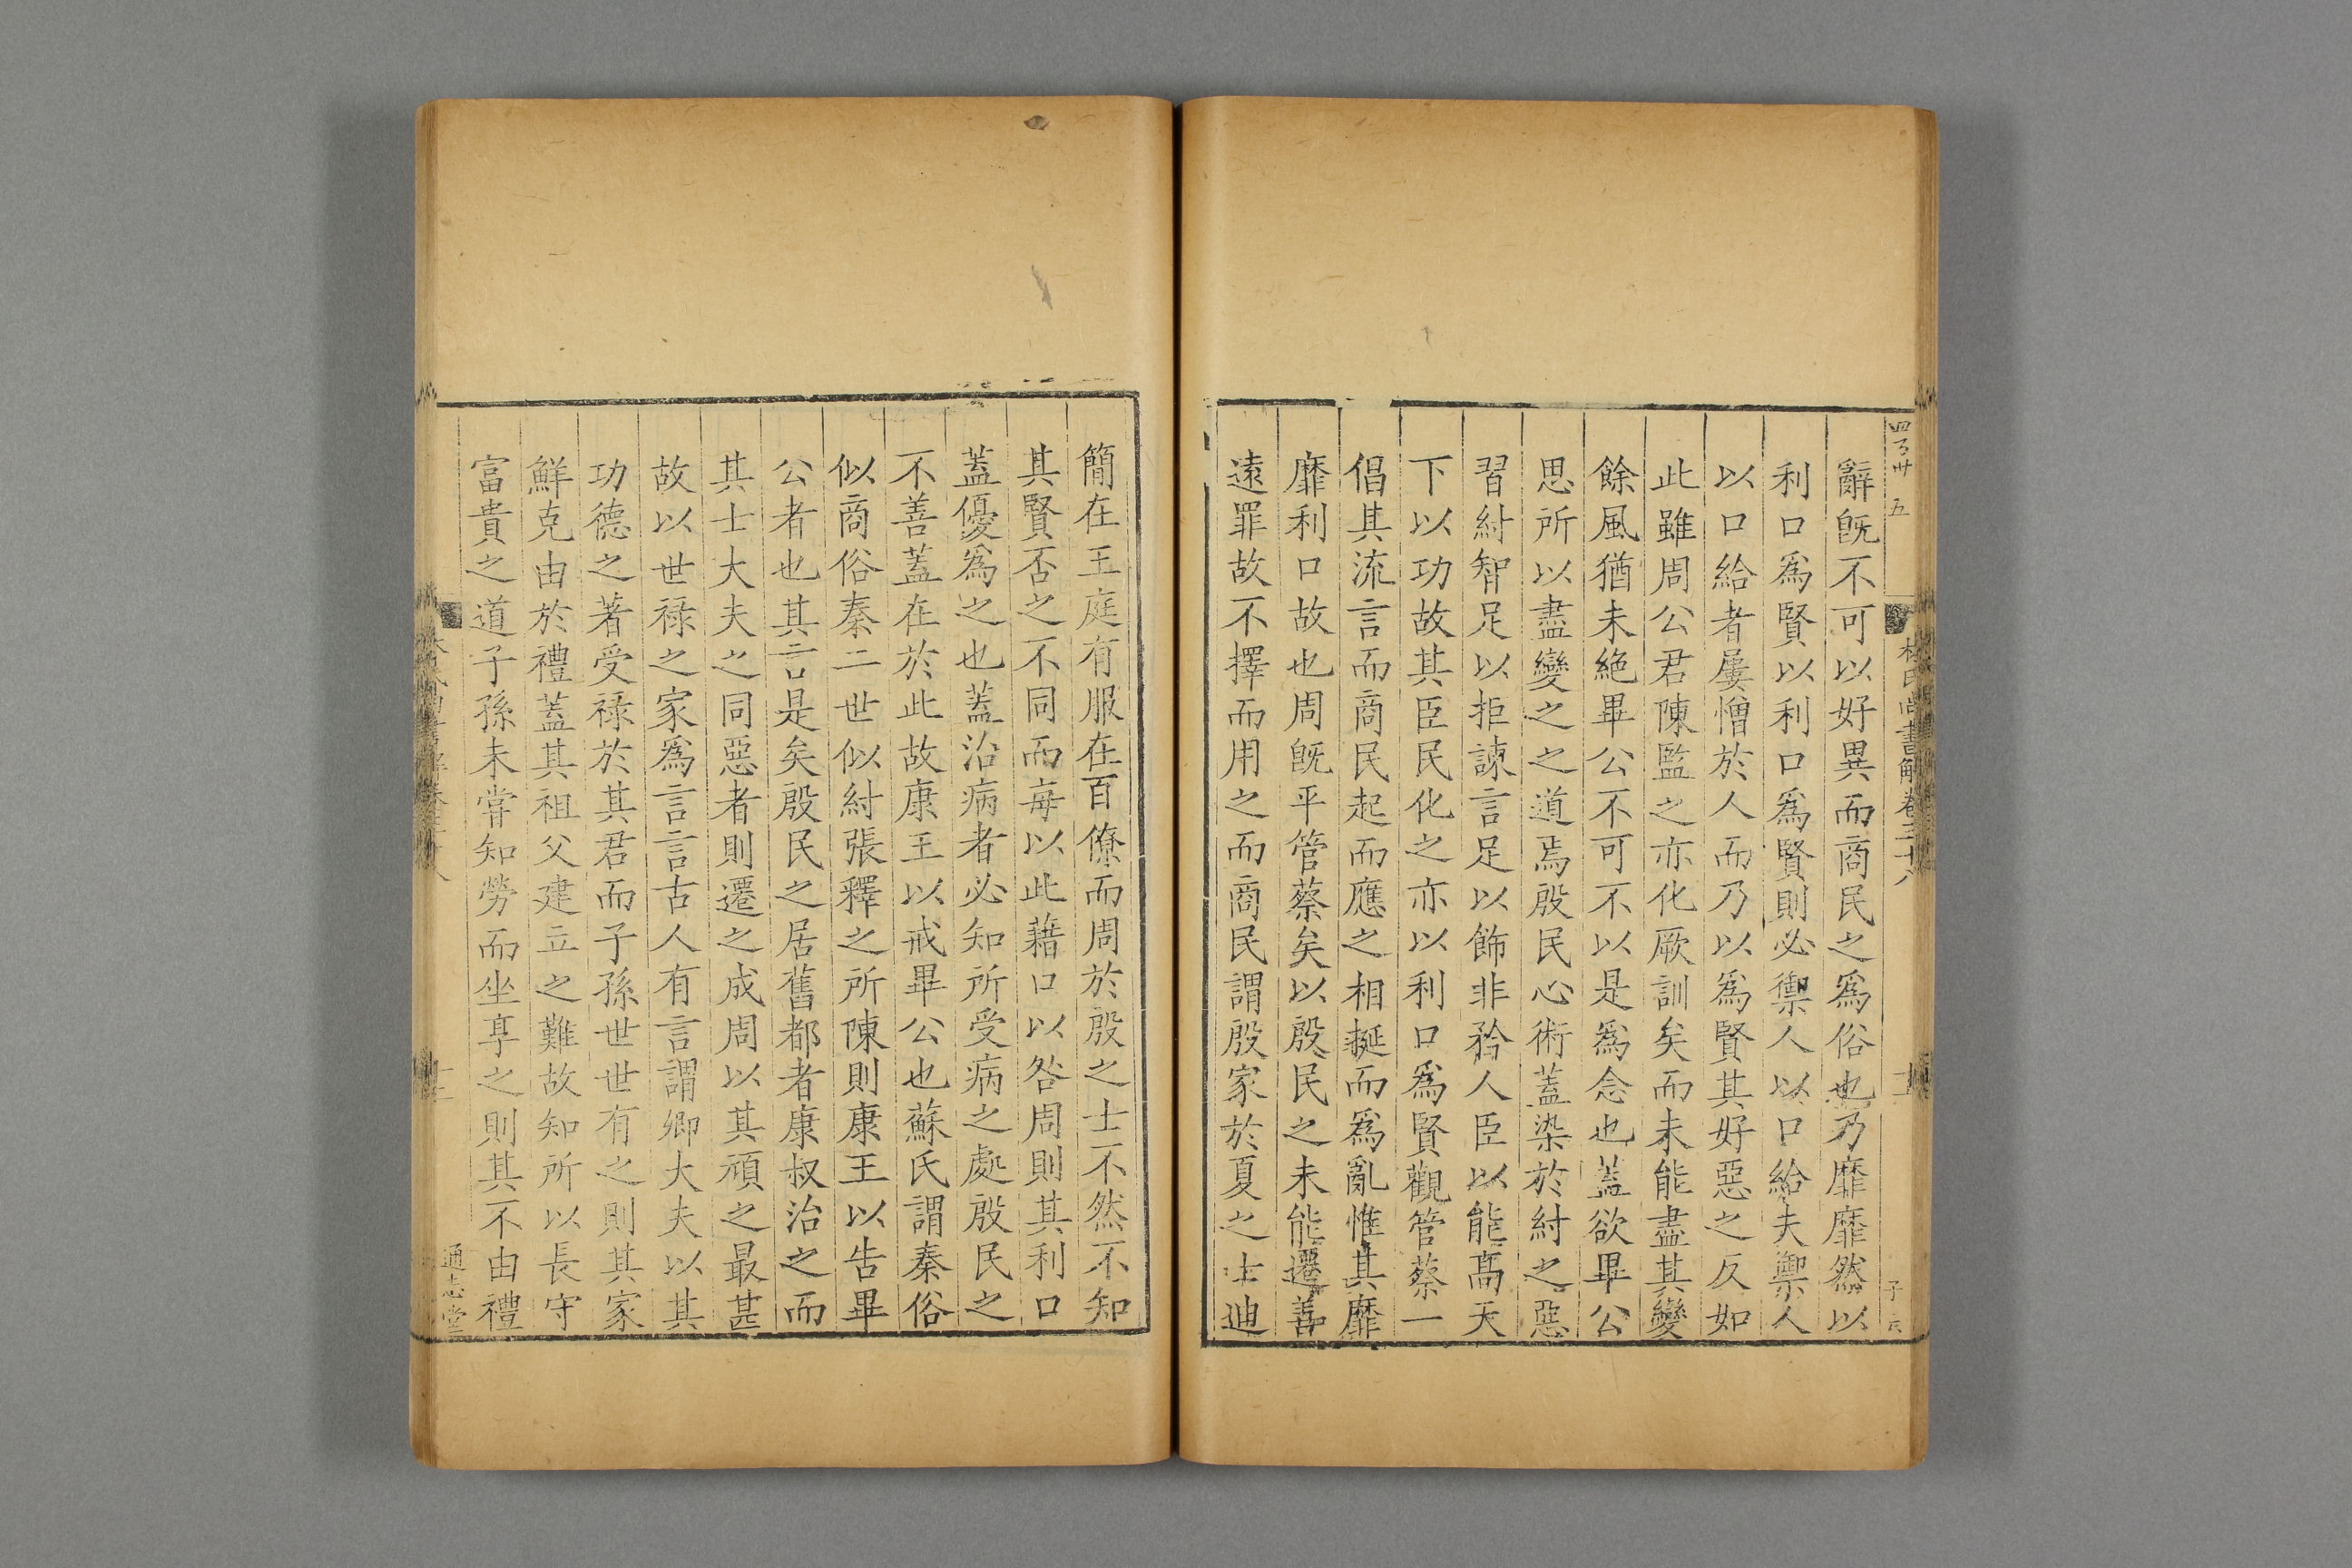 辭旣不可以好異而商民之爲俗也乃靡靡然以
利口爲賢以利口爲賢則必禦人以口給夫禦人
以口給者屢憎於人而乃以爲賢其好惡之反如
此雖周公君陳監之亦化厥訓矣而未能盡其變
餘風猶未絶畢公不可不以是爲念也蓋欲畢公
思所以盡變之之道焉殷民心術蓋染於紂之惡
習紂智足以拒諫言足以飾非矜人臣以能髙天
下以功故其臣民化之亦以利口爲賢觀管蔡一
倡其流言而商民起而應之相挻而爲亂惟其靡
靡利口故也周旣平管蔡矣以殷民之未能遷善
遠罪故不擇而用之而商民謂殷家於夏之士迪
簡在王庭有服在百僚而周於殷之士不然不知
其賢否之不同而毎以此藉口以咎周則其利口
蓋優爲之也蓋治病者必知所受病之處殷民之
不善蓋在於此故康王以戒畢公也蘇氏謂秦俗
似商俗秦二世似紂張釋之所陳則康王以告畢
公者也其言是矣殷民之居舊都者康叔治之而
其士大夫之同惡者則遷之成周以其頑之最甚
故以世禄之家爲言言古人有言謂卿大夫以其
功德之著受禄於其君而子孫世世有之則其家
鮮克由於禮蓋其祖父建立之難故知所以長守
富貴之道子孫未嘗知勞而坐享之則其不由禮
通志堂